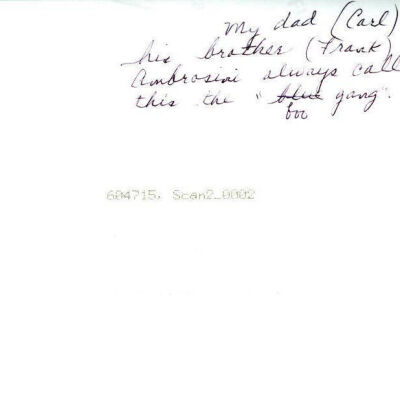 My dad (Carl)
his brother (Frank)
Ambrosini always call
this the "blue gang".
boo
604715, Scan2_0002